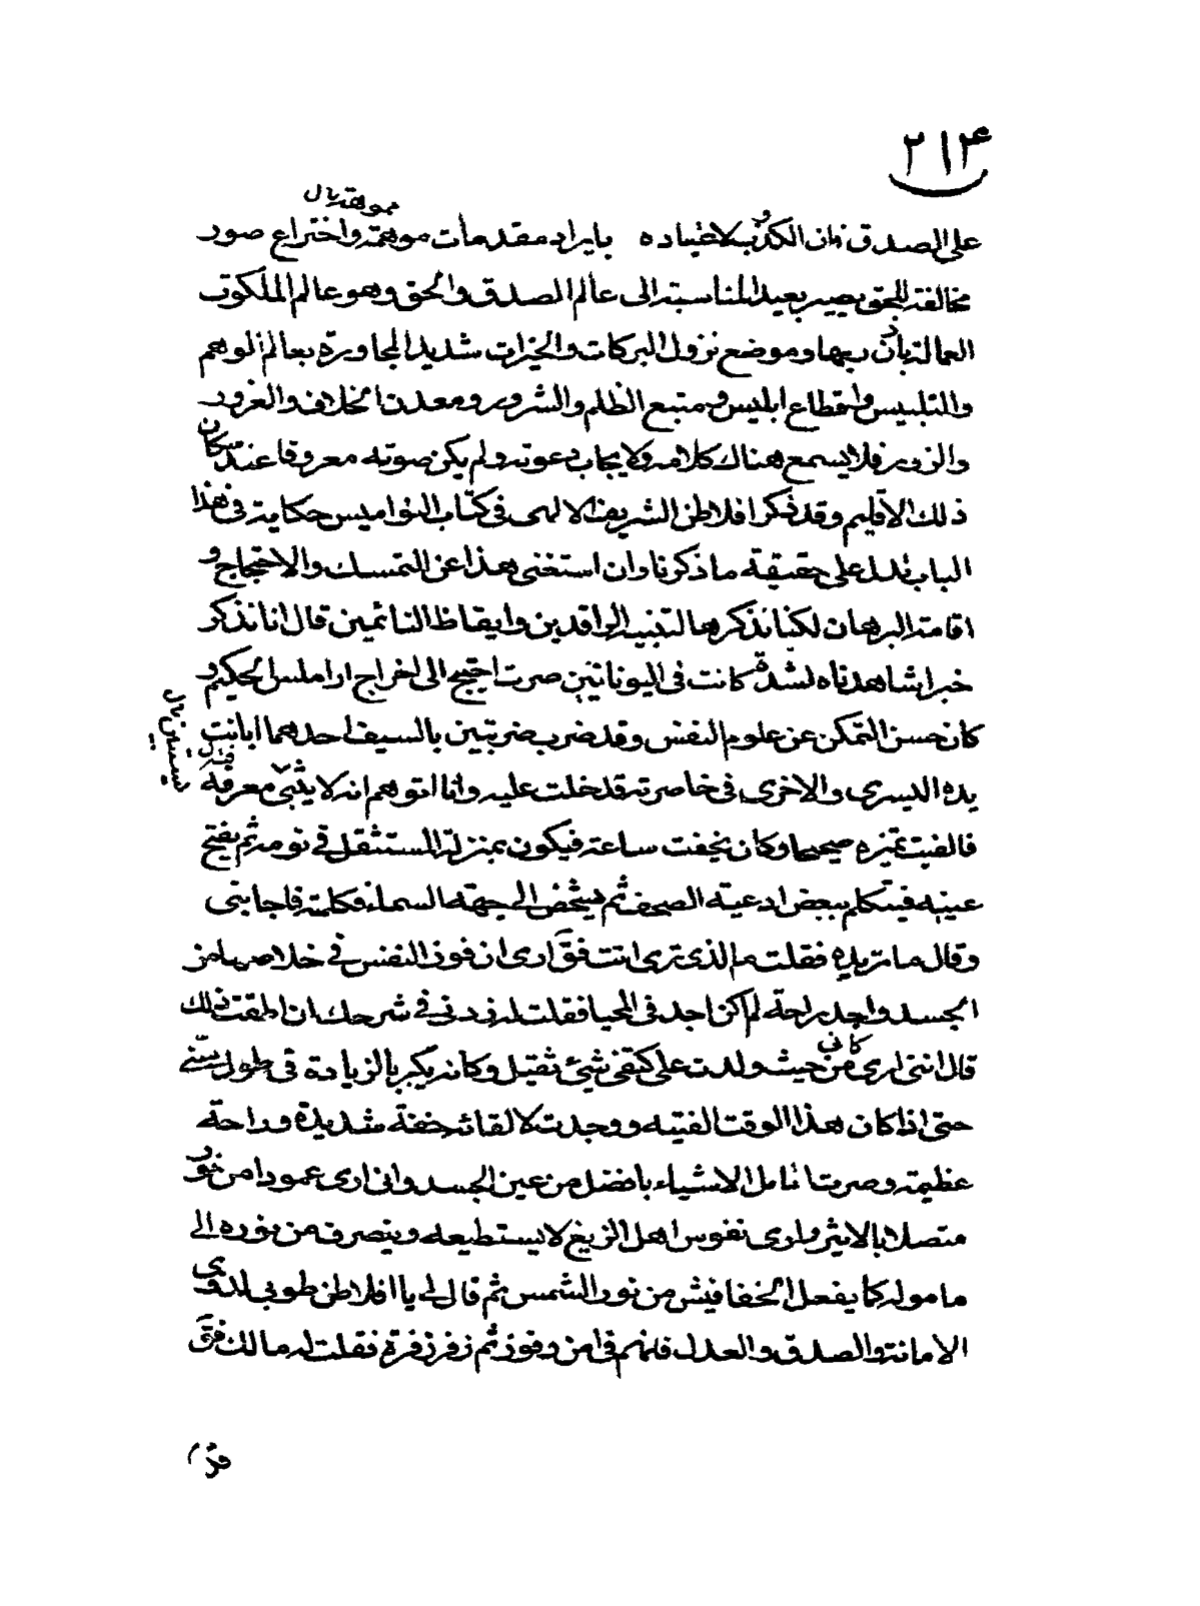 ۲۱۴
مموهة بال
على الصدق فان الكذوب لاعتياده بايراد مقدمات موهمة واختراع صور
مخالفة للحق يصير بعيد المناسبة الى عالم الصدق والحق وهو عالم الملكوت
العمالة باذن ربها وموضع نزول البركات والخيرات شديد المجاورة بعالم الوهم
والتلبيس واقطاع ابليس ومنبع الظلم والشرور ومعدن الخلاف والغرور
والزور فلا يسمع هناك كلامه ولا يجاب دعوته ولم يكن صوته معروفا عند سكان
ذلك الاقليم وقد ذكر افلاطن الشريف الالهى فى كتاب النواميس حكاية فى هذا
الباب تدل على حقيقة ما ذكرنا وان استغنى هذا عن التمسك والاحتجاج و
اقامة البرهان لكنا نذكرها لتنبيه الراقدين وايقاظ النائمين قال انا نذكر
خبرا شاهدناه لشدة كانت فى اليونانيين صرت احتيج الى اخراج اراملس الحكيم و
كان حسن التمكن عن علوم النفس وقد ضرب ضربتين بالسيف احدهما ابانت
يده اليسرى والاخرى فى خاصرته قد خلت عليه وانا اتوهم انه لا يثبتنى معرفة
فالفيت تميزه صحيحا وكان يخفت ساعة فيكون بمنزلة المستثقل فى نومه ثم يفتح
عينيه فيتكلم ببعض ادعية الصحف ثم يشخص الى جهة السماء فكلمته فاجابنى
وقال ما تريده فقلت ما الذى ترى انت فق ارى ان فوز النفس فى خلاصها من
الجسد واجد راحة لم اكن اجد فى المحيا فقلت له زدنى فى شرحك ان اطقت ذلك
قال انى ارى كانى من حيث ولدت على كتفى شئ ثقيل وكانه يكبر بالزيادة فى طول سنى
حتى اذا كان هذا الوقت الفيته ووجدت لالقائه خفة شديدة وراحة
عظيمة وصرت تامل الاشياء بافضل من عين الجسد وانى ارى عمودا من نور
متصلا بالاثير وارى نفوس اهل الزيغ لا يستطيعه وينصرف من نوره الى
ما موله كما يفعل الخفافيش من نور الشمس ثم قال لى يا افلاطن طوبى لذوى
الامانة والصدق والعدل فانهم فى امن وفوز ثم زفر زفرة فقلت له مالك فق